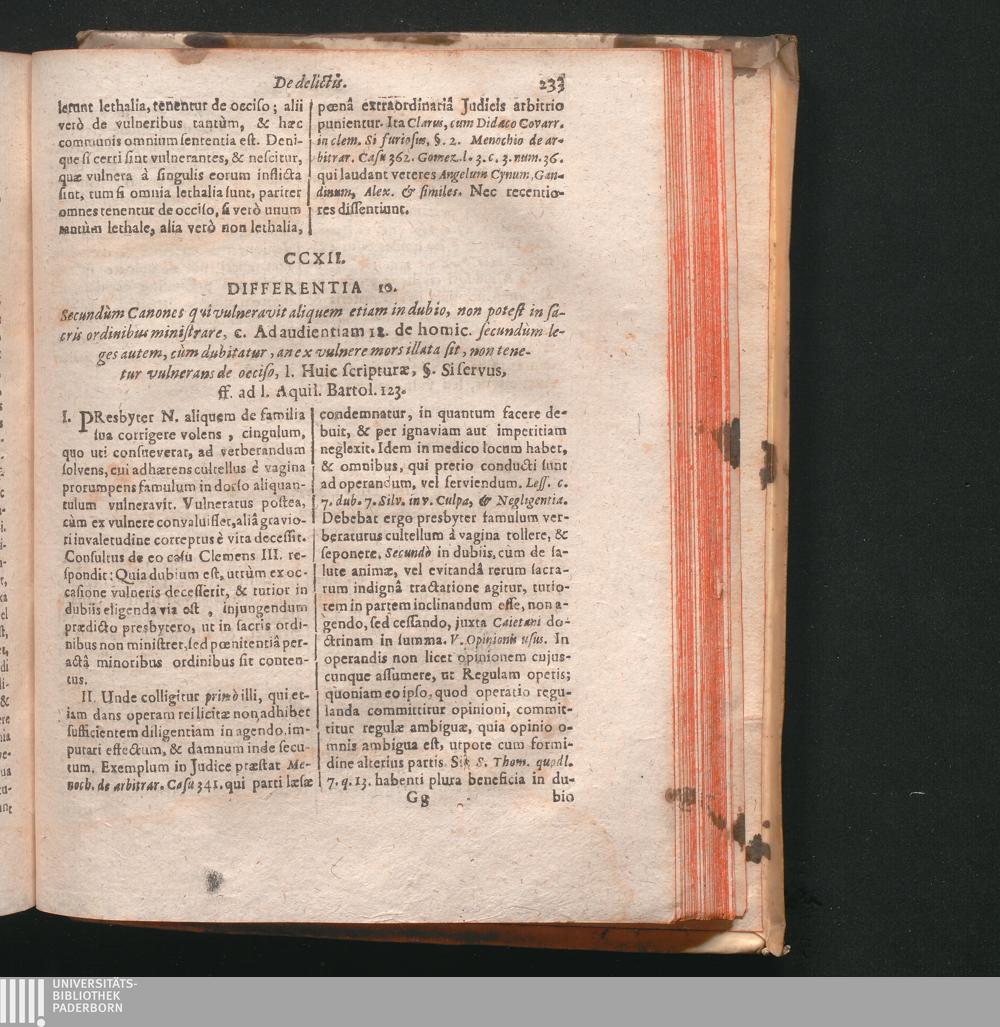 De delictis. 233
lerunt lethalia, tenentur de occiso; alii
verò de vulneribus tantùm, & hæc
communis omnium sententia est. Deni-
que si certi sint vulnerantes, & nescitur,
quæ vulnera à singulis eorum inflicta
sint, tum si omnia lethalia sunt, pariter
omnes tenentur de occiso, si verò unum
tantùm lethale, alia verò non lethalia,
pœnâ extraordinariâ Judicis arbitrio
punientur. Ita Clarus, cum Didaco Covarr.
in clem. Si furiosus, §. 2. Menochio de ar-
bitrar. Casu 362. Gomez. l. 3. c. 3. num. 36.
qui laudant veteres Angelum Cynum, Gan-
dinum, Alex. & similes. Nec recentio-
res dissentiunt.
CCXII.
DIFFERENTIA 10.
Secundùm Canones qui vulneravit aliquem etiam in dubio, non potest in sa-
cris ordinibus ministrare, c. Ad audientiam 12. de homic. secundùm le-
ges autem, cùm dubitatur, an ex vulnere mors illata sit, non tene-
tur vulnerans de occiso, l. Huic scripturæ, §. Si servus,
ff. ad l. Aquil. Bartol. 123.
I. PResbyter N. aliquem de familia
sua corrigere volens, cingulum,
quo uti consueverat, ad verberandum
solvens, cui adhærens cultellus è vagina
prorumpens famulum in dorso aliquan-
tulum vulneravit. Vulneratus postea,
cùm ex vulnere convaluisset, aliâ gravio-
ri invaletudine correptus è vita decessit.
Consultus de eo casu Clemens III. re-
spondit: Quia dubium est, utrùm ex oc-
casione vulneris decesserit, & tutior in
dubiis eligenda via est, injungendum
prædicto presbytero, ut in sacris ordi-
nibus non ministret, sed pœnitentiâ per-
actâ minoribus ordinibus sit conten-
tus.
II. Unde colligitur primò illi, qui et-
iam dans operam rei licitæ non adhibet
sufficientem diligentiam in agendo, im-
putari effectum, & damnum inde secu-
tum. Exemplum in Judice præstat Me-
noch. de arbitrar. Casu 341. qui parti læsæ
condemnatur, in quantum facere de-
buit, & per ignaviam aut imperitiam
neglexit. Idem in medico locum habet,
& omnibus, qui pretio conducti sunt
ad operandum, vel serviendum. Less. c.
7. dub. 7. Silv. in v. Culpa, & Negligentia.
Debebat ergo presbyter famulum ver-
beraturus cultellum à vagina tollere, &
seponere. Secundò in dubiis, cùm de sa-
lute animæ, vel evitandâ rerum sacra-
rum indignâ tractatione agitur, tutio-
rem in partem inclinandum esse, non a-
gendo, sed cessando, juxta Caietani do-
ctrinam in summa. V. Opinionis usus. In
operandis non licet opinionem cujus-
cunque assumere, ut Regulam operis;
quoniam eo ipso, quod operatio regu-
landa committitur opinioni, commit-
titur regulæ ambiguæ, quia opinio o-
mnis ambigua est, utpote cum formi-
dine alterius partis. Sic S. Thom. quodl.
7. q. 13. habenti plura beneficia in du-
Gg bio
UNIVERSITÄTS-
BIBLIOTHEK
PADERBORN